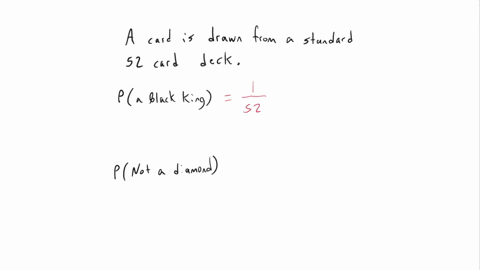 A card is drawn from a standard
52 card deck.
P(a Black King) = 1/52
P(Not a diamond)